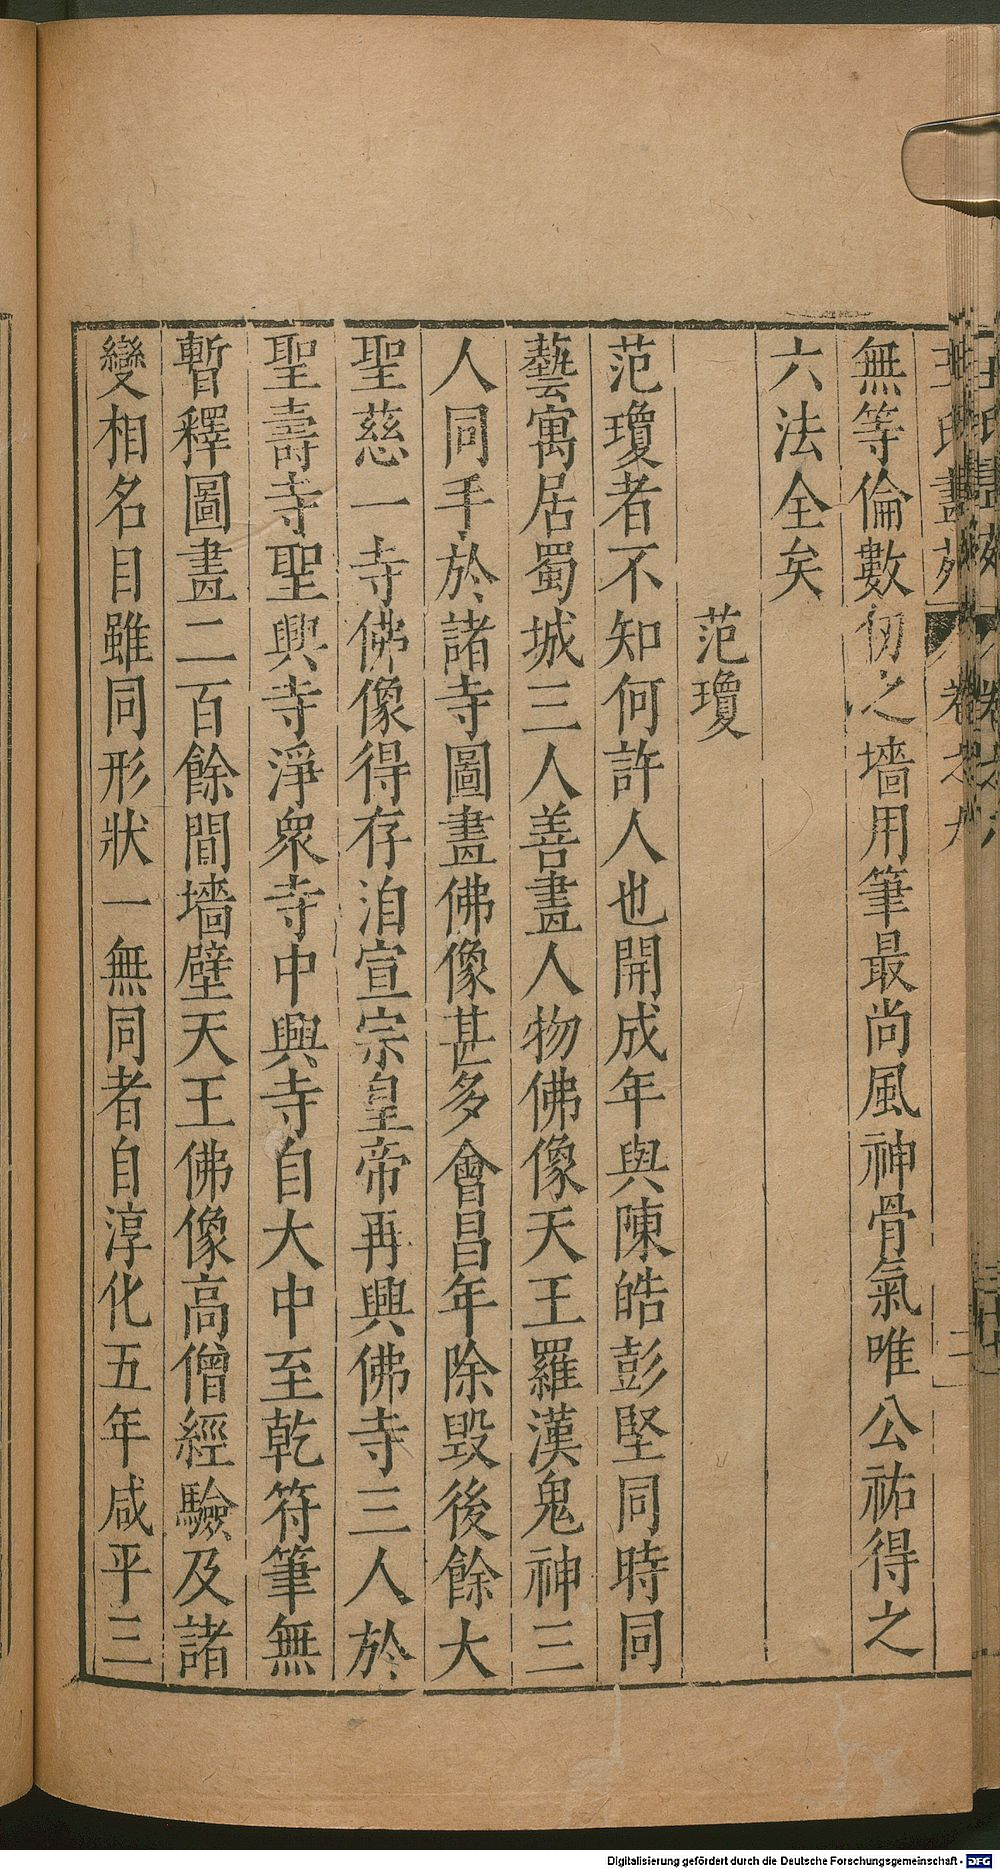 無等倫數仞之墻用筆最尚風神骨氣唯公祐得之
六法全矣
范瓊
范瓊者不知何許人也開成年與陳皓彭堅同時同
藝寓居蜀城三人善畫人物佛像天王羅漢鬼神三
人同手於諸寺圖畫佛像甚多會昌年除毀後餘大
聖慈一寺佛像得存洎宣宗皇帝再興佛寺三人於
聖壽寺聖興寺淨眾寺中興寺自大中至乾符筆無
暫釋圖畫二百餘間墻壁天王佛像高僧經驗及諸
變相名目雖同形狀一無同者自淳化五年咸平三
Digitalisierung gefördert durch die Deutsche Forschungsgemeinschaft - DFG